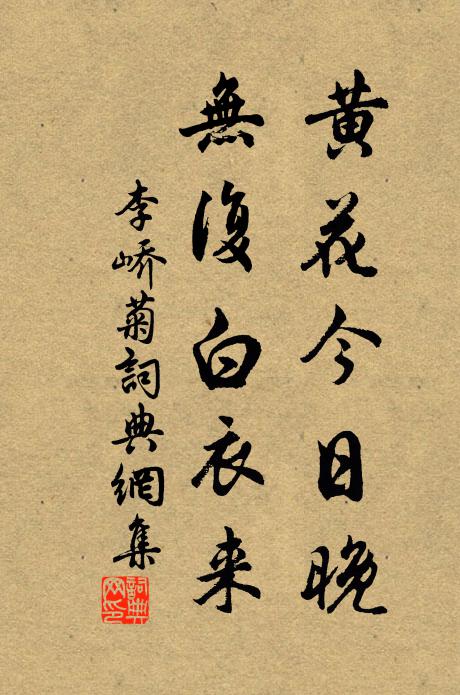 黄花今日晚
無復白衣来
李嶠菊詞典網集
詞典网印